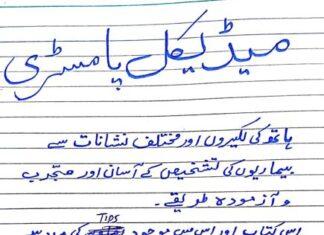 میڈیکل پامسٹری
ہاتھ کی لکیروں اور مختلف نشانات سے
بیماریوں کی تشخیص کے آسان اور مجرب
و آزمودہ طریقے۔
Tips
اس کتاب اور اس میں موجود کی مدد سے